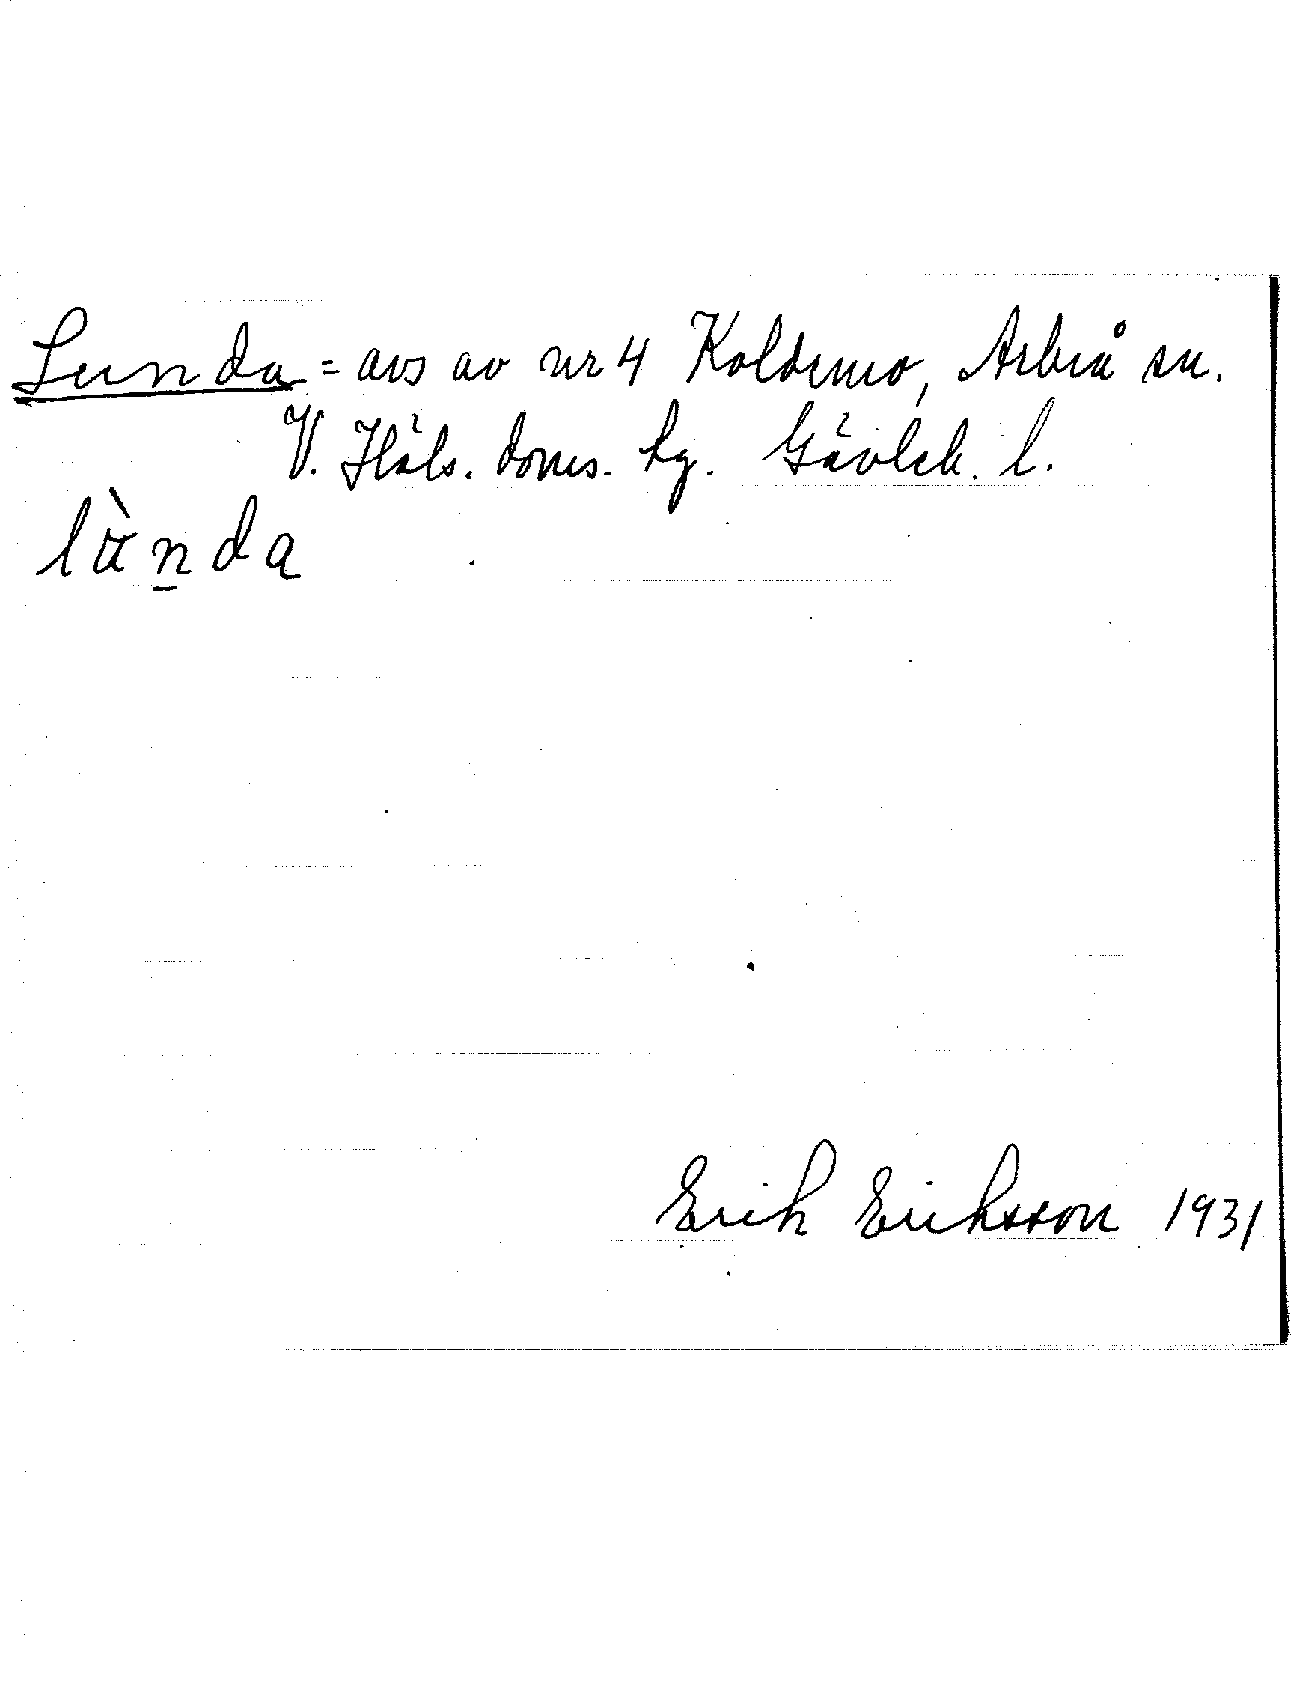 Lunda = avs av nr 4 Koldemo, Arbrå sn.
V. Häls. doms. hg. Gävleb. l.
lὰn̲da
Erik Eriksson 1931